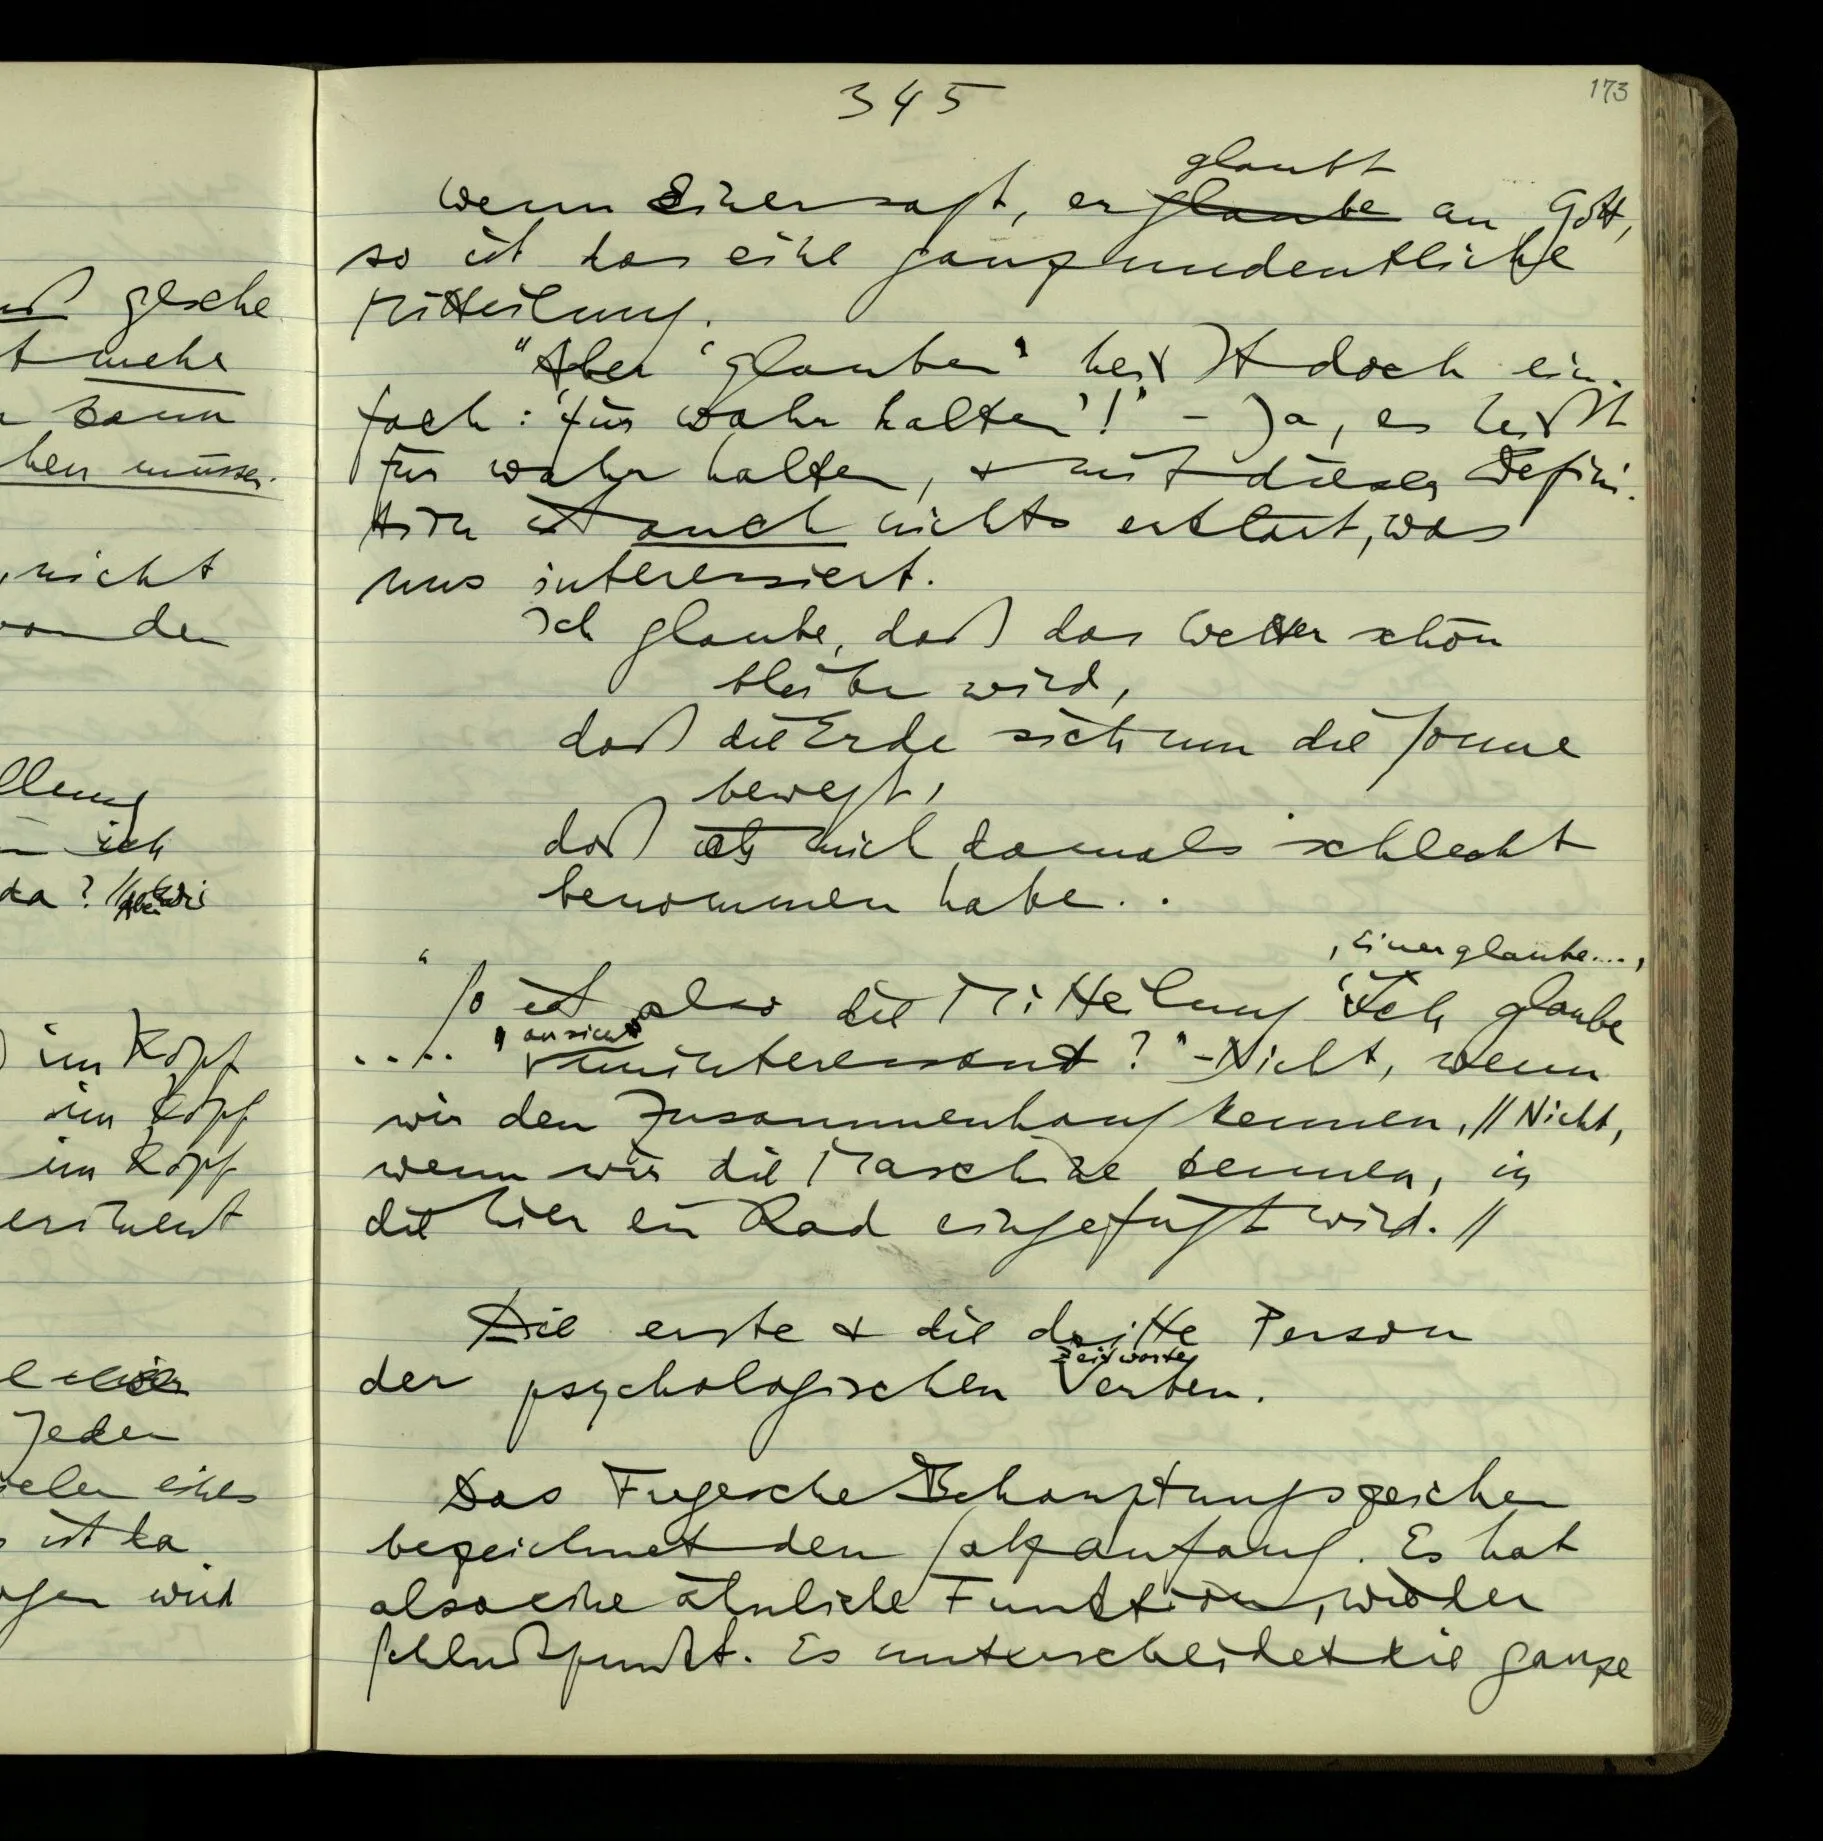 uß gesche
t mehr
n kann
hen müssen.
, nicht
von den
llung
ich
da ?
im Kopf
im Kopf
im Kopf
eriment
Jeden
ielen eines
s ist da
ogen wird
345
173
glaubt
Wenn Einer sagt, er glaube an Gott,
so ist das eine ganz undeutliche
Mitteilung.
"Aber 'glauben' heißt doch ein-
fach: 'für wahr halten'!" – Ja, es heißt
für wahr halten, & mit dieser Defini-
tion ist auch nichts erklärt, was
uns interessiert.
Ich glaube, daß das Wetter schön
bleiben wird,
daß die Erde sich um die Sonne
bewegt,
daß ich mich damals schlecht
benommen habe. .
'Einer glaube....'
"So ist also die Mitteilung 'Ich glaube
....' an sich uninteressant?" – Nicht, wenn
wir den Zusammenhang kennen, // Nicht,
wenn wir die Maschine kennen, in
die hier ein Rad eingefügt wird. //
Die erste & die dritte Person
Zeitworte
der psychologischen Verben.
Das Fregesche Behauptungszeichen
bezeichnet den Satzanfang. Es hat
also eine ähnliche Funktion, wie der
Schlußpunkt. Es unterscheidet die ganze